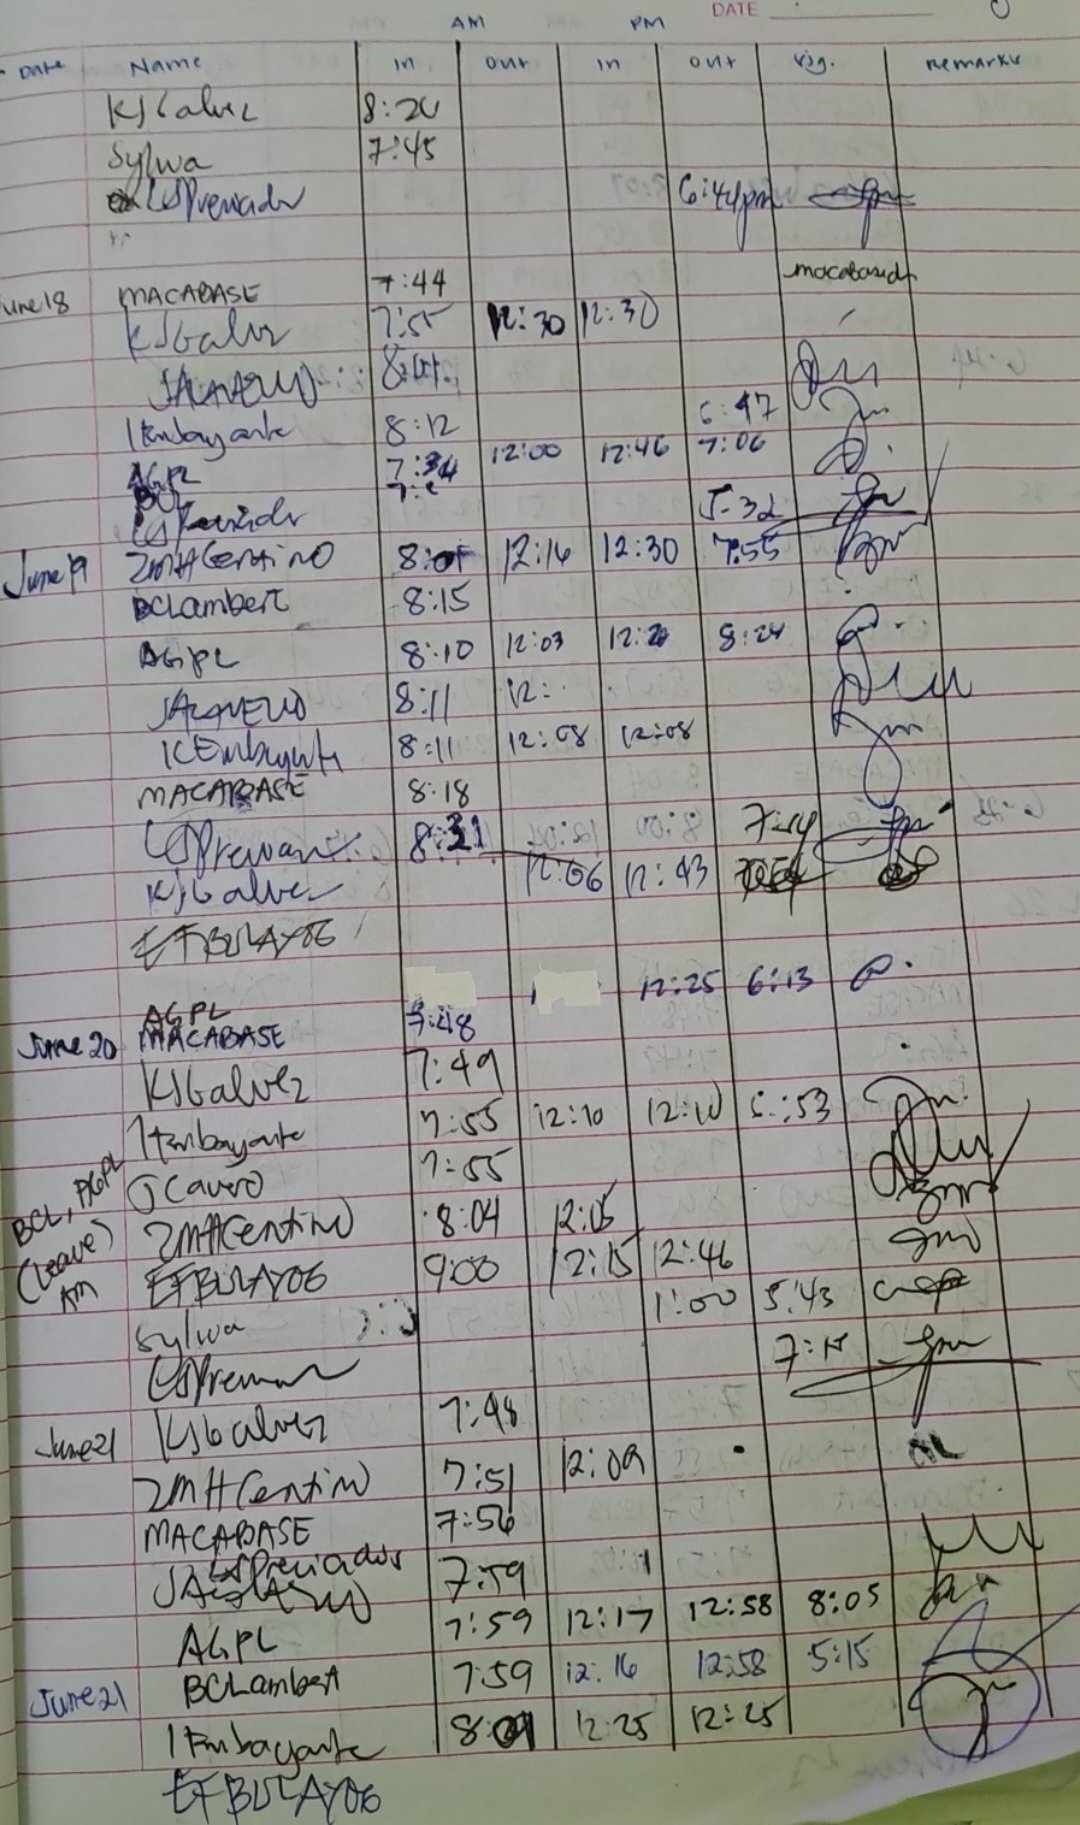 DATE
AM PM
Date Name In Out In Out Sig. Remarks
KJGalvez 8:20
Sylwa 7:45
LSPreciados 6:44pm
June 18 MACABASE 7:44 macabasedr
KJGalvez 7:55 12:30 12:30
JACAVERO
IEmbayarte 8:12 6:47
AGPL 7:34 12:00 12:46 7:06
BCL
LSPreciados 5:32
June 19 ZMHCentino 8:01 12:14 12:30 7:55
BCLambert 8:15
AGPL 8:10 12:03 8:24
JACAVERO 8:11 12:
ICEmbayarte 8:11 12:08 12:08
MACABASE 8:18
LSPreciados 8:31
KJGalvez 12:06 12:43
EFBULAYOG
AGPL 12:25 6:13
June 20 MACABASE 7:48
KJGalvez 7:49
IEmbayarte 7:55 12:10 12:10 :53
JCavero 7:55
BCL, AGPL (Leave) AM
ZMHCentino 8:04 12:05
EFBULAYOG 9:00 12:15 12:46
Sylwa 1:00 5:43
LSPreciados 7:15
June 21 KJGalvez 7:48
ZMHCentino 7:51 12:09
MACABASE 7:56
LSPreciados
JACAVERO 7:59
AGPL 7:59 12:17 12:58 8:05
June 21 BCLambert 7:59 12:16 12:58 5:15
IEmbayarte 8:01 12:25 12:25
EFBULAYOG